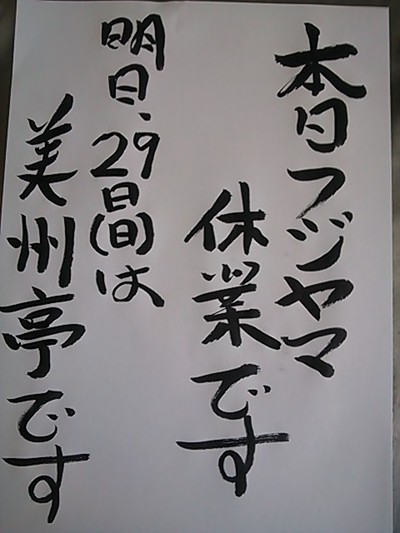 本日フジヤマ
休業です
明日、29日(日)は
美州亭です